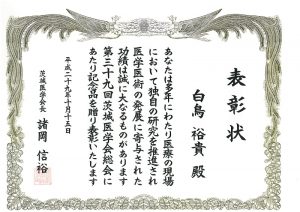 表彰状
白鳥 裕貴 殿
あなたは多年にわたり医療の現場
において独自の研究を推進され
医学医術の発展に寄与された
功績は誠に大なるものがあります
第三十九回茨城医学会総会に
あたり記念品を贈り表彰いたします
平成二十九年十月十五日
茨城医学会会長 諸岡 信裕